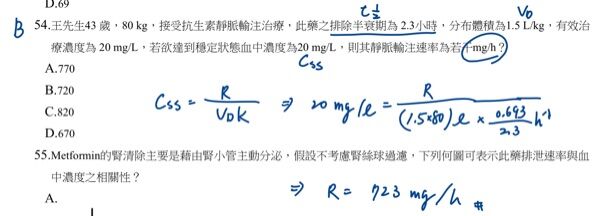 D.69
t½
V_D
B 54.王先生43 歲，80 kg，接受抗生素靜脈輸注治療，此藥之排除半衰期為 2.3小時，分布體積為1.5 L/kg，有效治
療濃度為 20 mg/L，若欲達到穩定狀態血中濃度為20 mg/L，則其靜脈輸注速率為若干mg/h？
Css
A.770
B.720
Css = R / V_D K ⇒ 20 mg/l = R / (1.5×80) l × 0.693 / 2.3 h⁻¹
C.820
D.670
55.Metformin的腎清除主要是藉由腎小管主動分泌，假設不考慮腎絲球過濾，下列何圖可表示此藥排泄速率與血
中濃度之相關性？
⇒ R = 723 mg/h #
A.